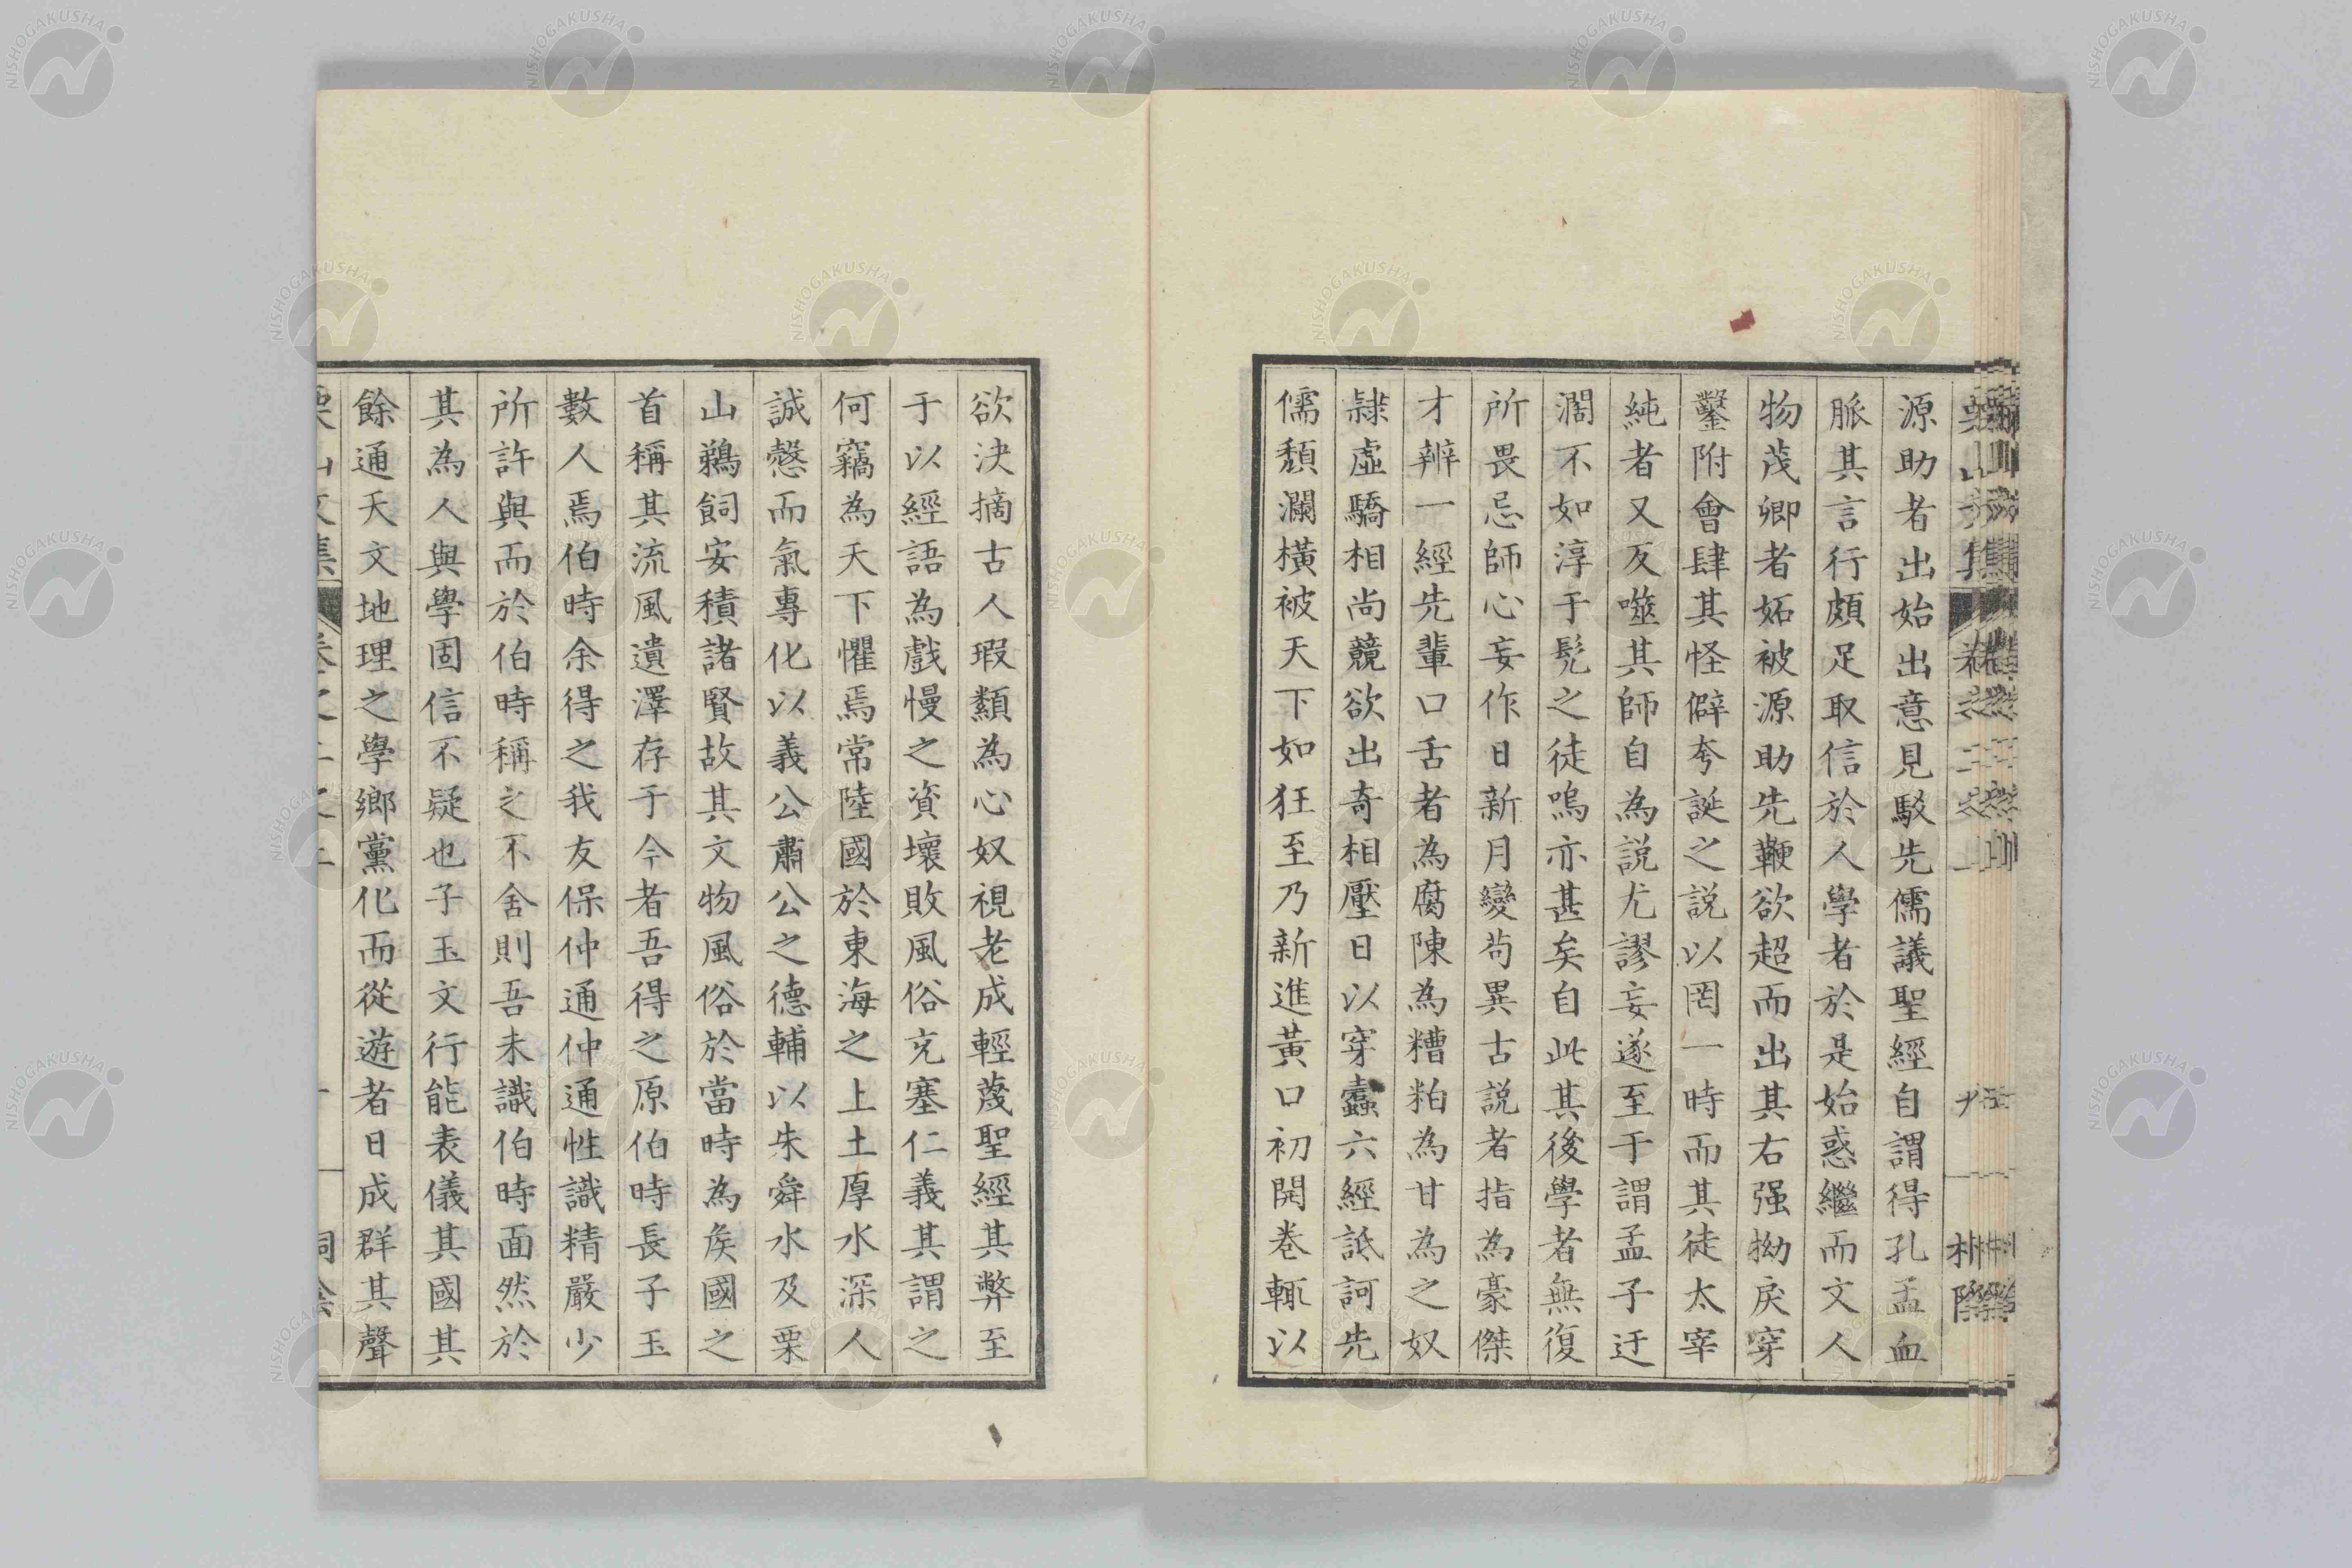 源助者出始出意見駁先儒議聖經自謂得孔孟血
脈其言行頗足取信於人學者於是始惑繼而文人
物茂卿者妬被源助先鞭欲超而出其右强拗戾穿
鑿附會肆其怪僻夸誕之説以罔一時而其徒太宰
純者又反噬其師自為説尤謬妄遂至于謂孟子迂
濶不如淳于髡之徒嗚亦甚矣自此其後學者無復
所畏忌師心妄作日新月變茍異古説者指為豪傑
才辨一經先輩口舌者為腐陳為糟粕為甘為之奴
隷虛驕相尚競欲出奇相壓日以穿蠹六經詆訶先
儒頽瀾橫被天下如狂至乃新進黃口初開卷輒以
欲決摘古人瑕纇為心奴視老成輕蔑聖經其弊至
于以經語為戲慢之資壞敗風俗充塞仁義其謂之
何竊為天下懼焉常陸國於東海之上土厚水深人
誠愨而氣專化以義公肅公之德輔以朱舜水及栗
山鵜飼安積諸賢故其文物風俗於當時為矦國之
首稱其流風遺澤存于今者吾得之原伯時長子玉
數人焉伯時余得之我友保仲通仲通性識精嚴少
所許與而於伯時稱之不舍則吾未識伯時面然於
其為人與學固信不疑也子玉文行能表儀其國其
餘通天文地理之學鄉黨化而從遊者日成群其聲